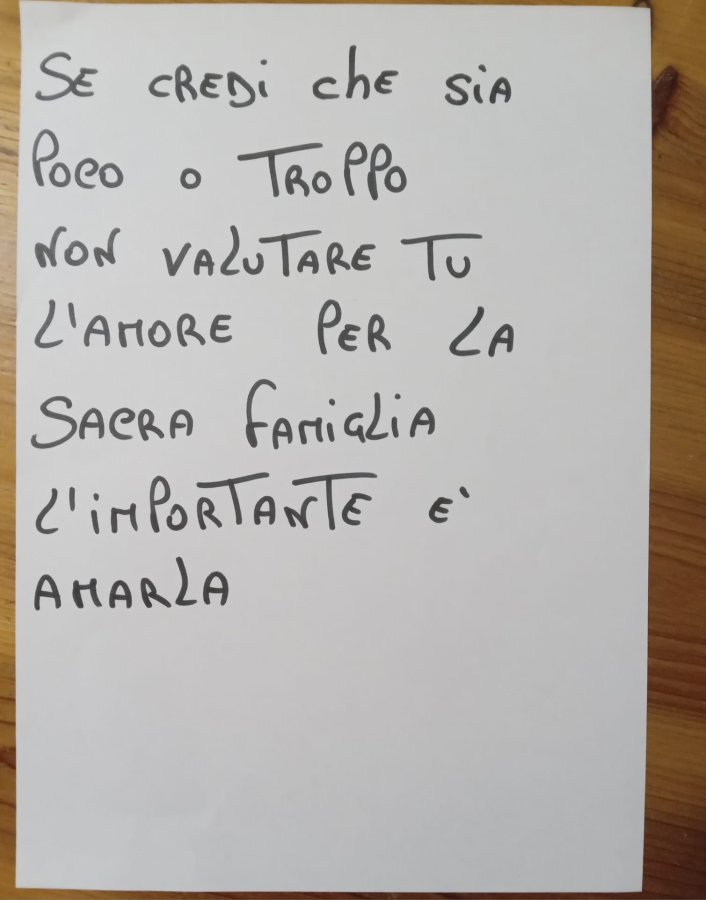 SE CREDi chE SiA
POCO O TROPPO
NON VALUTARE TU
L'AMORE PER LA
SACRA FAMiGLiA
L'iMPORTANTE E'
AMARLA